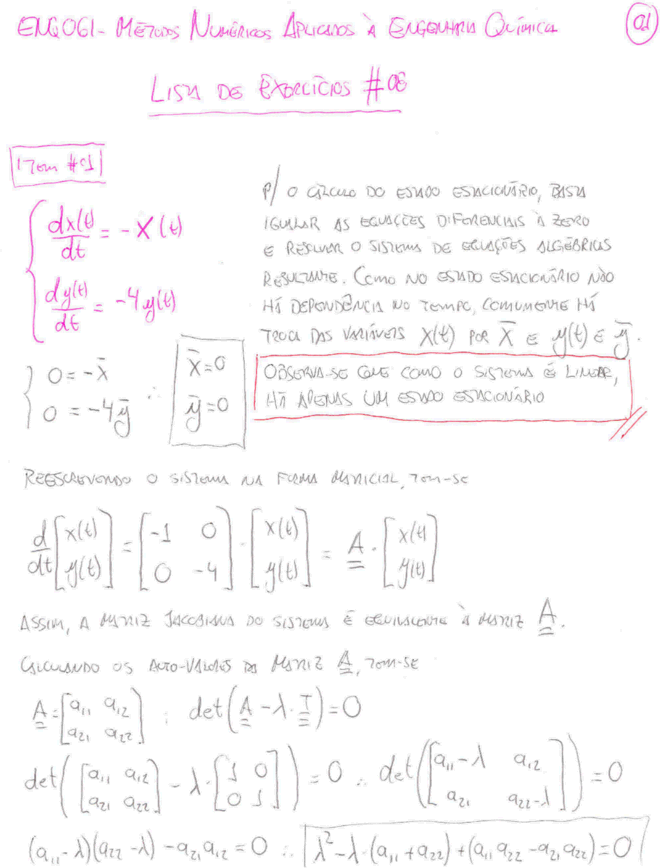 ENG061- MÉTODOS NUMÉRICOS APLICADOS À ENGENHARIA QUÍMICA
01
LISTA DE EXERCÍCIOS #06
ITEM #01
dx(t)/dt = - x(t)
dy(t)/dt = -4y(t)
P/ O CÁLCULO DO ESTADO ESTACIONÁRIO, BASTA
IGUALAR AS EQUAÇÕES DIFERENCIAIS À ZERO
E RESOLVER O SISTEMA DE EQUAÇÕES ALGÉBRICAS
RESULTANTE. COMO NO ESTADO ESTACIONÁRIO NÃO
HÁ DEPENDÊNCIA NO TEMPO, COMUMENTE HÁ
TROCA DAS VARIÁVEIS x(t) POR x̄ E y(t) E ȳ.
0 = -x̄
0 = -4ȳ
∴
x̄ = 0
ȳ = 0
OBSERVA-SE QUE COMO O SISTEMA É LINEAR,
HÁ APENAS UM ESTADO ESTACIONÁRIO
REESCREVENDO O SISTEMA NA FORMA MATRICIAL, TEM-SE
d/dt [x(t) y(t)] = [-1 0 0 -4] · [x(t) y(t)] = A · [x(t) y(t)]
ASSIM, A MATRIZ JACOBIANA DO SISTEMA É EQUIVALENTE À MATRIZ A.
CALCULANDO OS AUTO-VALORES DA MATRIZ A, TEM-SE
A = [a11 a12 a21 a22] : det(A - λ · I) = 0
det([a11 a12 a21 a22] - λ · [1 0 0 1]) = 0 ∴ det([a11-λ a12 a21 a22-λ]) = 0
(a11-λ)(a22-λ) - a21a12 = 0 ∴ λ² - λ·(a11+a22) + (a11a22 - a21a22) = 0